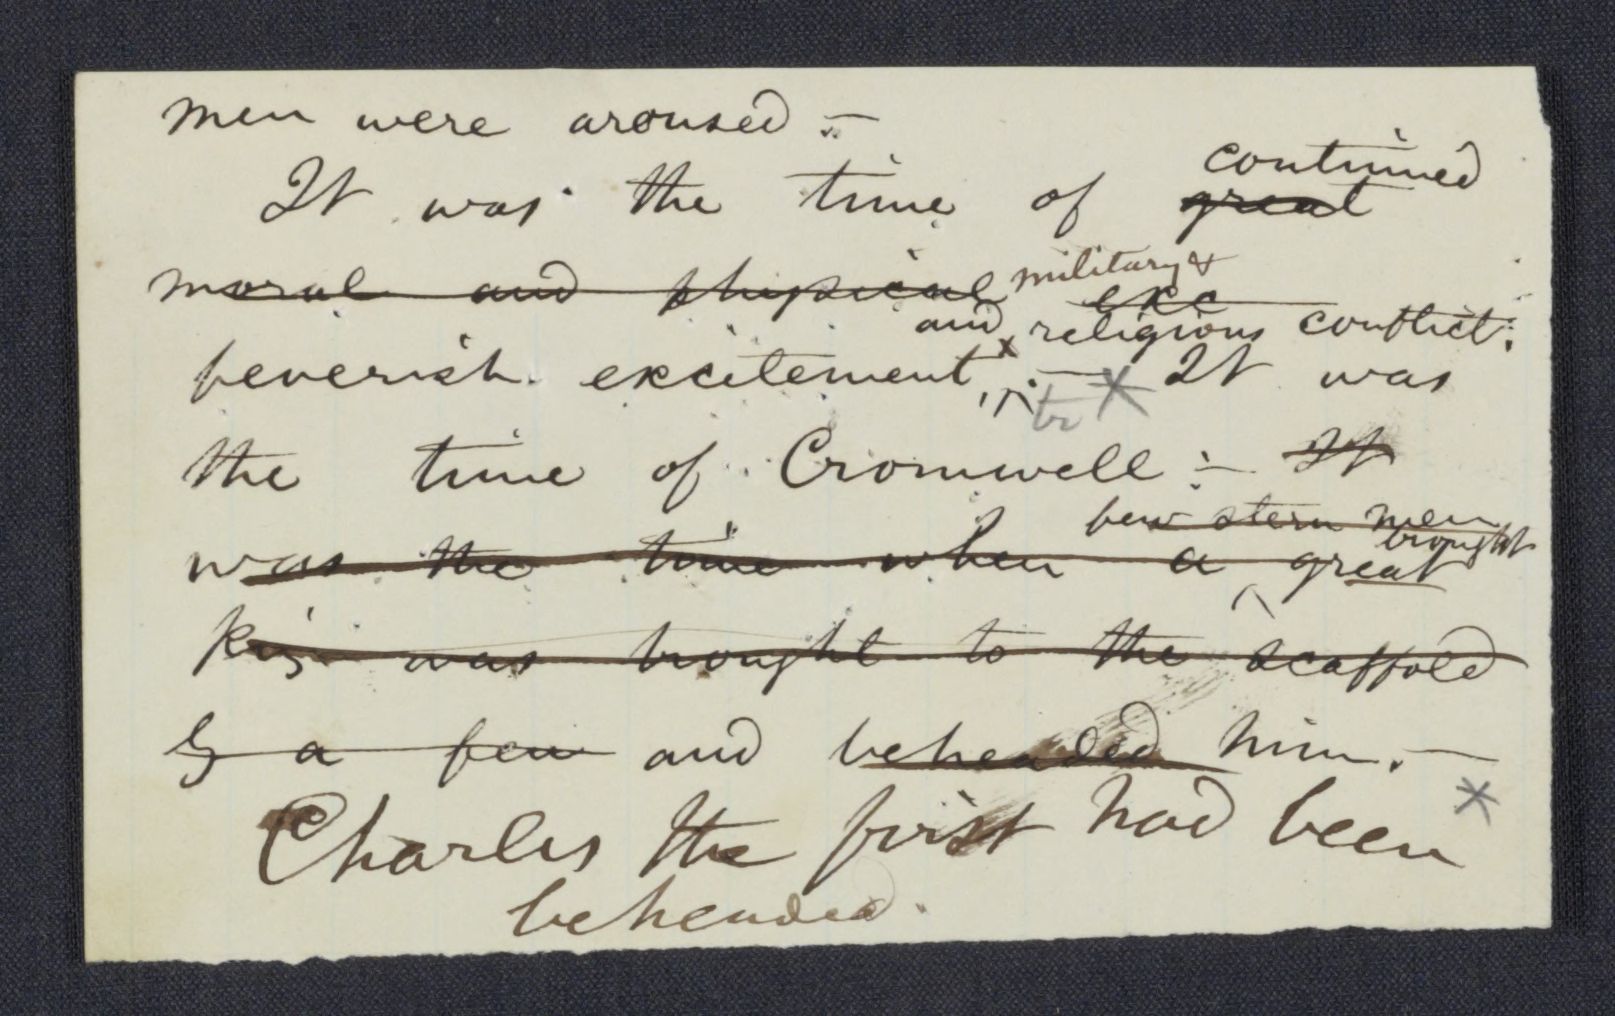 men were aroused. —
continued
It was the time of great
moral and physical military &
exc
and religious conflict:
feverish excitement, — It was
tr
the time of Cromwell: — It
few stern men
brought
was the time when a great
king was brought to the scaffold
by a few and beheaded him. —
Charles the first had been
beheaded.